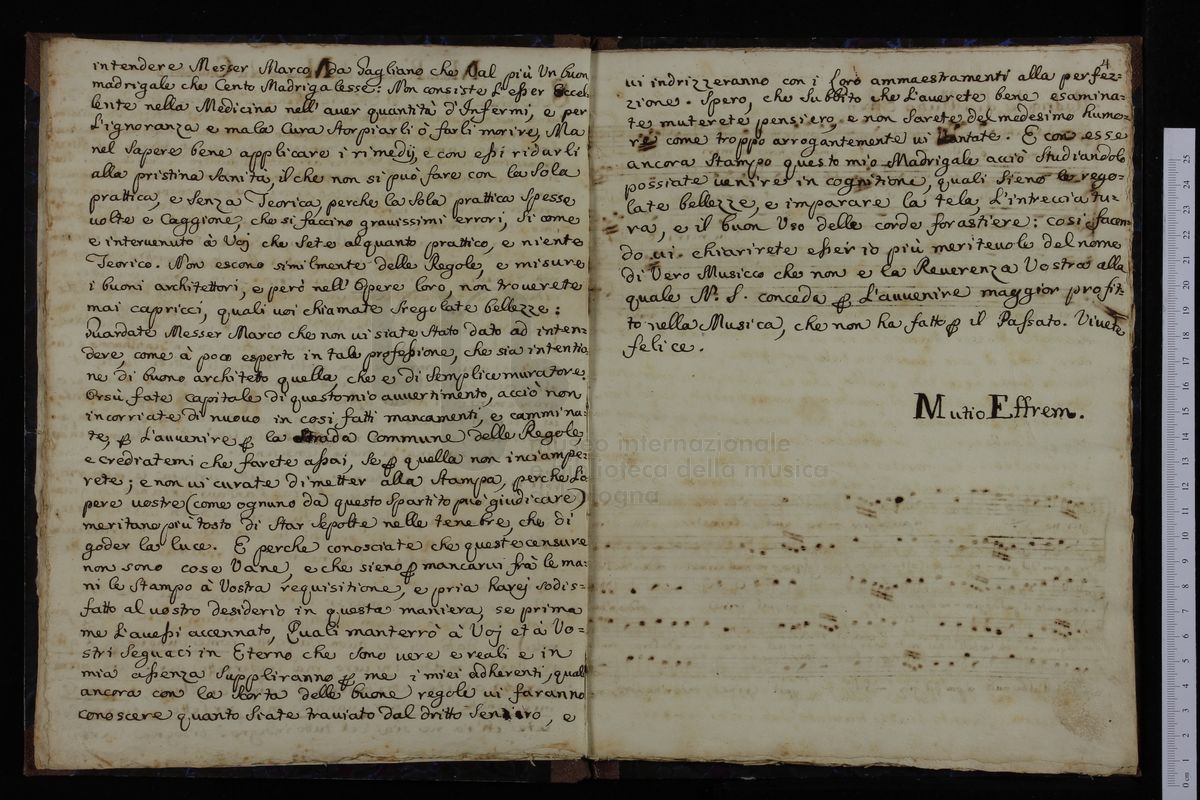 intendere Messer Marco da Gagliano che Val più Un buon
madrigale che Cento Madrigalesse: Non consiste L'esser Eccel-
lente nella Medicina nell'auer quantità d'Infermi, e per
L'ignoranza e mala Cura Storpiarli ò farli morire, Ma
nel Sapere bene applicare i rimedij, e con essi ridarli
alla pristina Sanità, il che non si può fare con la Sola
prattica, e Senza Teorica, perche la Sola prattica Spesse
uolte e Caggione, che si faccino grauissimi errori, Si come
e interuenuto à Uoj che Sete alquanto prattico, e niente
Teorico. Non escono similmente delle Regole, e misure
i buoni architettori, e però nell'Opere loro, non trouerete
mai capricci, quali uoi chiamate Sregolate bellezze:
Guardate Messer Marco che non ui siate Stato dato ad inten-
dere, come à poco esperto in tale professione, che sia intentio-
ne di buono architetto quella, che e di Semplice muratore.
Orsù fate capitale di questo mio auuertimento, acciò non
incorriate di nuouo in cosi fatti mancamenti, e cammina-
te, p L'auuenire p la Strada Commune delle Regole,
e crediatemi che farete assai, Se p quella non inciampe-
rete; e non ui curate di metter alla Stampa, perche L'o
pere uostre (come ognuno da questo Spartito può giudicare)
meritano più tosto di Star Sepolte nelle tenebre, che di
goder la luce. E perche conosciate che queste censure
non sono cose Vane, e che sieno p mancarui frà le ma-
ni le Stampo à Vostra requisitione, e pria harej sodis-
fatto al uostro desiderio in questa maniera, se prima
me L'auessi accennato, Quali manterrò à Uoj et à Vo=
stri Seguaci in Eterno che sono uere e reali e in
mia assenza Suppliranno p me i miei adherenti, quali
ancora con la Scorta delle buone regole ui faranno
conoscere quanto Siate trauiato dal dritto Sentiero, e
ui indrizzeranno con i Loro ammaestramenti alla perfez-
zione. Spero, che Subbito che L'auerete bene esamina-
te muterete pensiero, e non Sarete del medesimo humo-
re come troppo arrogantemente ui Vantate. E con esse
ancora Stampo questo mio Madrigale acciò Studiandolo
possiate uenire in cognitione, quali Sieno le rego-
late bellezze, e imparare la tela, L'intrecciatu-
ra, e il buon Uso delle corde forastiere: così facen
do ui chiarirete esser io più meriteuole del nome
di Vero Musicco che non e la Reuerenza Vostra alla
quale N. S. conceda p L'auuenire maggior profit-
to nella Musica, che non ha fatto p il Passato. Viuete
felice.
Mutio Effrem.
Museo internazionale
e biblioteca della musica
di Bologna